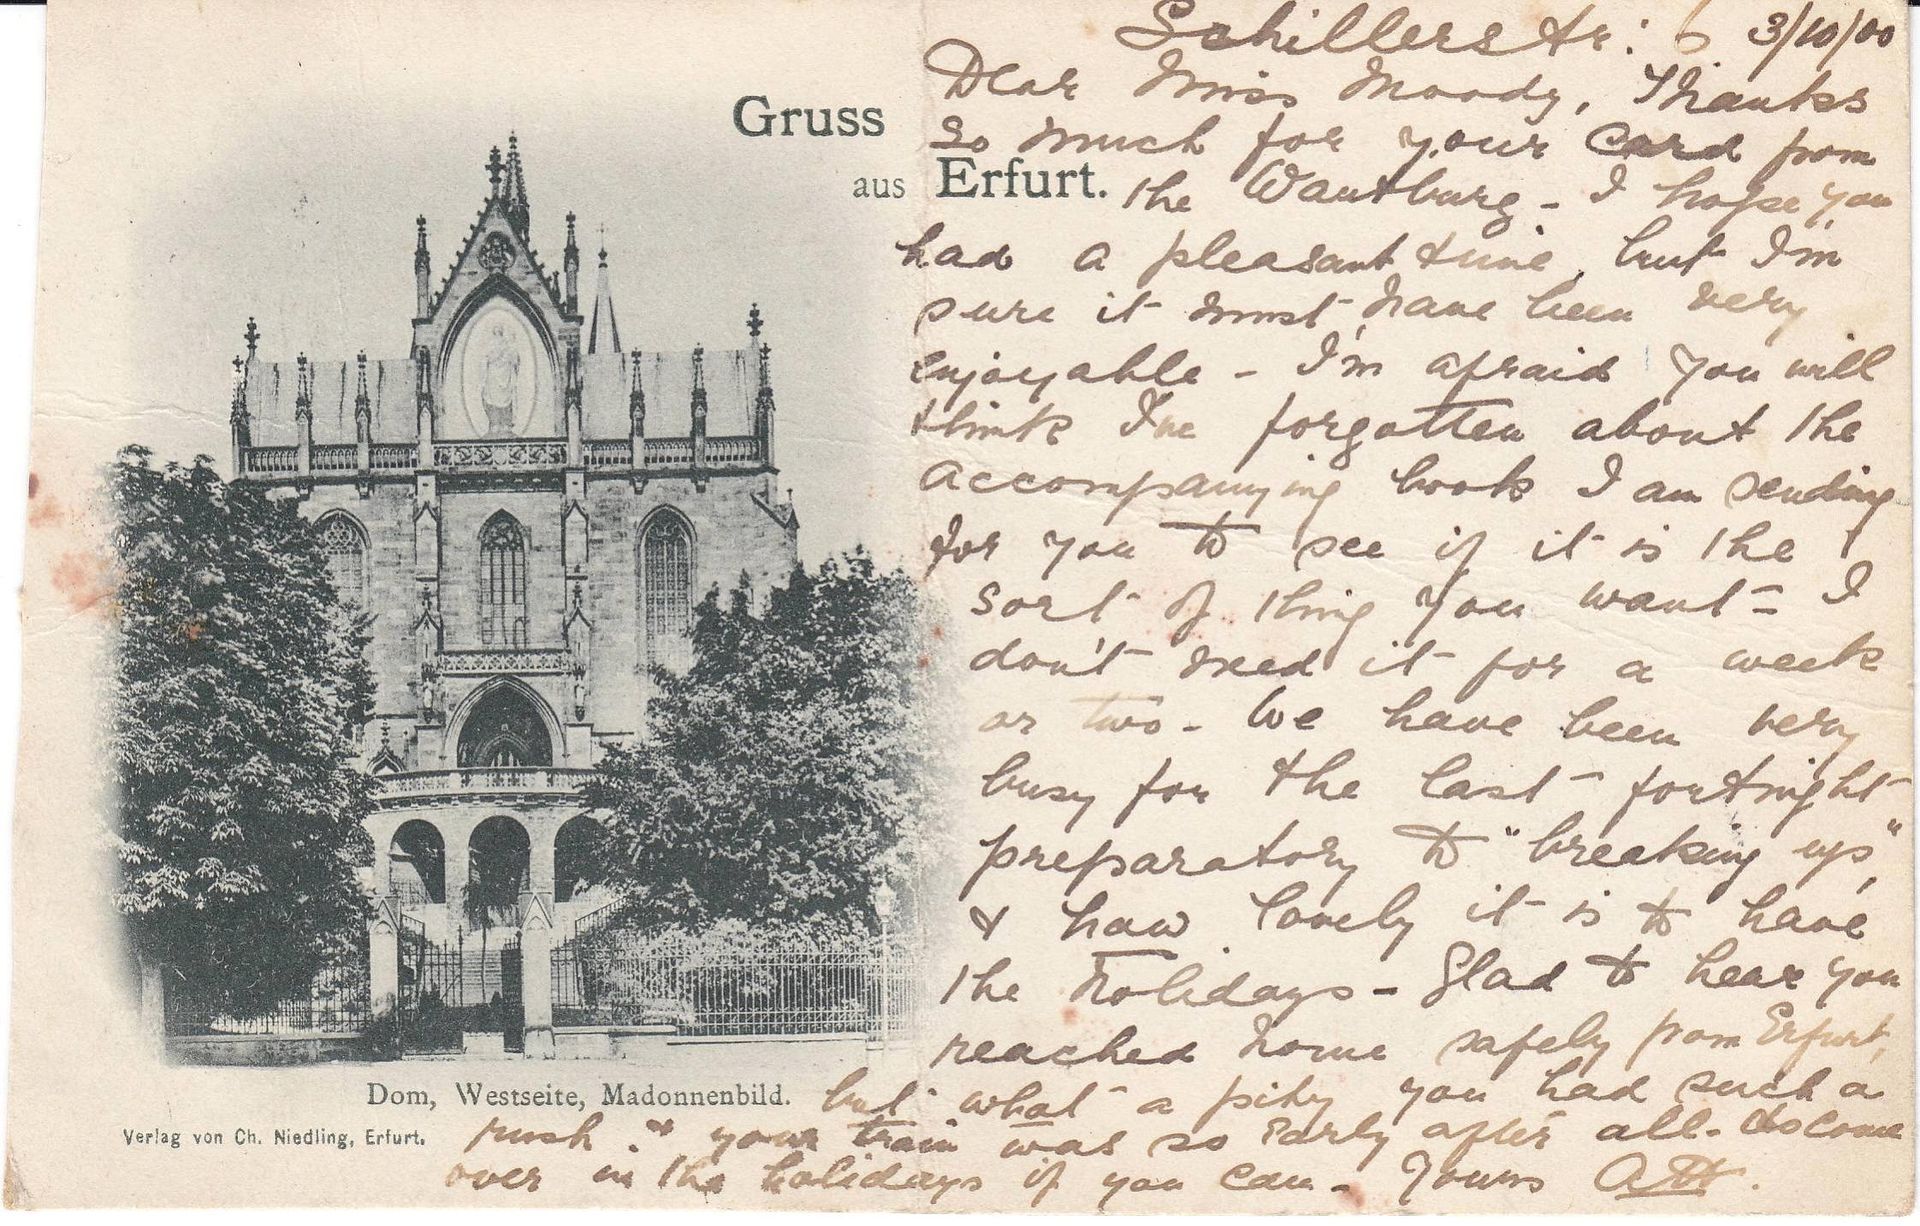 Gruss
aus Erfurt.
Schillerstr: 6 3/10/00
Dear Miss Moody, Thanks
so much for your card from
the Wartburg - I hope you
had a pleasant time, but I'm
sure it must have been very
enjoyable - I'm afraid you will
think I've forgotten about the
accompanying book I am sending
for you to see if it is the
sort of thing you want - I
don't need it for a week
or two - We have been very
busy for the last fortnight
preparatory to "breaking up",
& how lovely it is to have
the holidays - Glad to hear you
reached home safely from Erfurt,
but what a pity you had such a
rush & your train was so early after all. Do come
over in the holidays if you can - Yours
Dom, Westseite, Madonnenbild.
Verlag von Ch. Niedling, Erfurt.